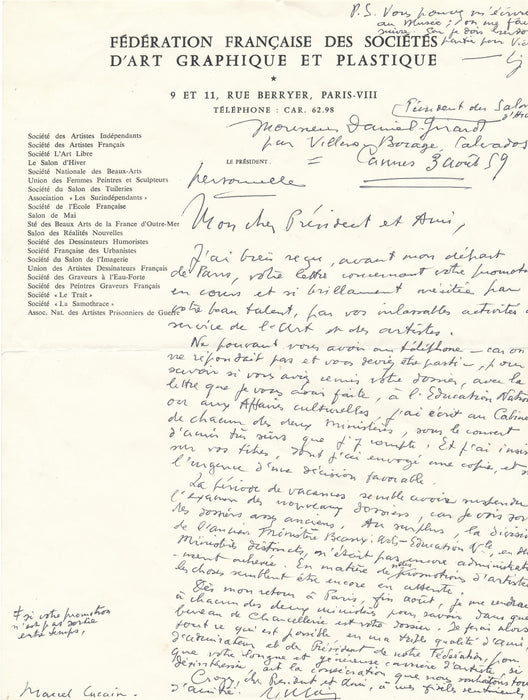 P.S. Vous pouvez m'écrire
au Musée ; on me fait
suivre.
FÉDÉRATION FRANÇAISE DES SOCIÉTÉS
D'ART GRAPHIQUE ET PLASTIQUE
★
9 ET 11, RUE BERRYER, PARIS-VIII
TÉLÉPHONE : CAR. 62.98
Président des Salon
Monsieur Daniel-Girard
par Villers Bocage, Calvados
LE PRÉSIDENT.
Cannes 3 août 59
personnelle
Société des Artistes Indépendants
Société des Artistes Français
Société L'Art Libre
Le Salon d'Hiver
Société Nationale des Beaux-Arts
Union des Femmes Peintres et Sculpteurs
Société du Salon des Tuileries
Association « Les Surindépendants »
Société de l'École Française
Salon de Mai
Sté des Beaux Arts de la France d'Outre-Mer
Salon des Réalités Nouvelles
Société des Dessinateurs Humoristes
Société Française des Urbanistes
Société du Salon de l'Imagerie
Union des Artistes Dessinateurs Français
Société des Graveurs à l'Eau-Forte
Société des Peintres Graveurs Français
Société « Le Trait »
Société « La Samothrace »
Assoc. Nat. des Artistes Prisonniers de Guerre
Mon cher Président et Ami,
J'ai bien reçu, avant mon départ
de Paris, votre lettre concernant votre promotion
en cours et si brillamment méritée par
votre beau talent, par vos inlassables activités au
service de l'Art et des artistes.
Ne pouvant vous avoir au téléphone – car on
ne répondait pas et vous deviez être parti –, pour
savoir si vous aviez remis votre dossier, avec la
lettre que je vous avais faite, à l'Education Nation
ou aux Affaires culturelles, j'ai écrit au Cabinet
de chacun des deux ministères, sous le couvert
d'amis très sûrs que j'y compte. Et j'ai insisté
sur vos titres, dont j'ai envoyé une copie, et sur
l'urgence d'une décision favorable.
La période de vacances semble avoir suspendu
l'examen des nouveaux dossiers, car je vois
les dossiers assez anciens. Au surplus, la division
de l'ancien Ministère Beaux-Arts-Education Nle, en deux
Ministères distincts, n'était pas encore administrative
-ment achevée. En matière de promotions d'artistes
les choses semblent être encore en attente.
Dès mon retour à Paris, fin août, je me rendrai
à chacun des deux ministères pour savoir dans quel
bureau de Chancellerie est votre dossier. Je ferai alors
tout ce qui est possible en ma triple qualité d'ami,
d'admirateur et de Président de notre Fédération, pour
que votre longue et généreuse carrière d'artiste
désintéressé, ait la consécration que nous souhaitons tous
Croyez, cher Président et Ami, à mes
d'amitié.
si votre promotion
n'est pas sortie
entre temps,